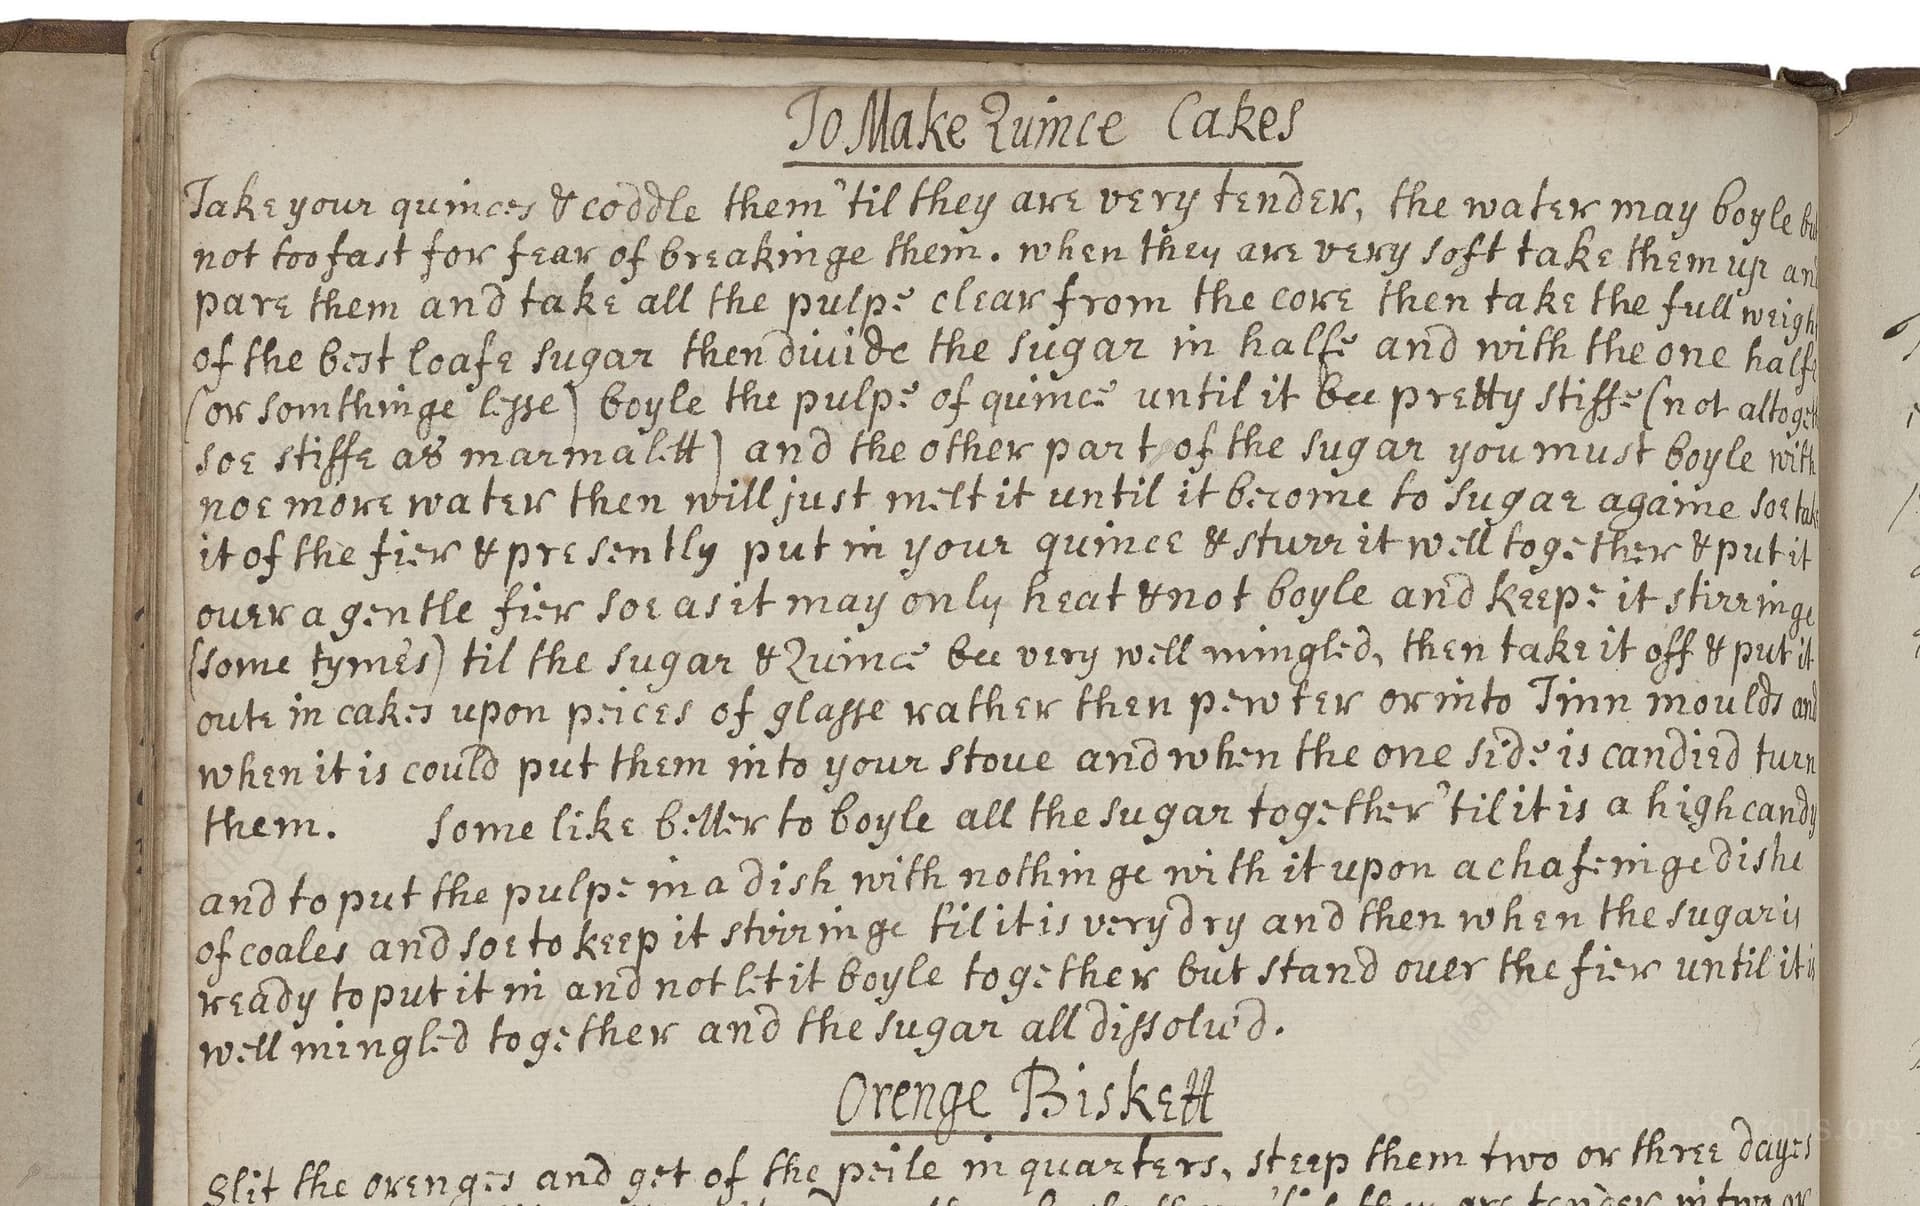 To Make Quince Cakes
Take your quinces & coddle them 'til they are very tender, the water may boyle but
not too fast for fear of breakinge them. when they are very soft take them up and
pare them and take all the pulpe clear from the core then take the full weight
of the best loafe sugar then diuide the sugar in halfe and with the one halfe
(or somthinge lesse) boyle the pulpe of quince until it bee pretty stiffe (not altogeth
soe stiffe as marmalett) and the other part of the sugar you must boyle with
noe more water then will just melt it until it become to sugar againe soe take
it of the fier & presently put in your quince & sturr it well together & put it
over a gentle fier soe as it may only heat & not boyle and keepe it stirringe
(some tymes) til the sugar & Quince bee very well mingled, then take it off & put it
oute in cakes upon peices of glasse rather then pewter or into Tinn moulds and
when it is could put them into your stoue and when the one side is candied turn
them. Some like better to boyle all the sugar together 'til it is a high candy
and to put the pulpe in a dish with nothinge with it upon a chafeinge dishe
of coales and soe to keep it stirringe til it is very dry and then when the sugar is
ready to put it in and not let it boyle together but stand over the fier until it is
well mingled together and the sugar all dissolu'd.
Orenge Biskett
Slit the orenges and get of the peile in quarters, steep them two or three dayes